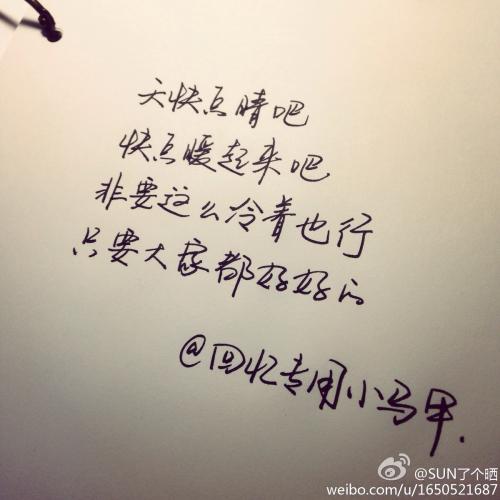 天快点晴吧
快点暖起来吧
非要这么冷着也行
只要大家都好好的
@回忆专用小马甲.
@SUN了个晒
weibo.com/u/1650521687